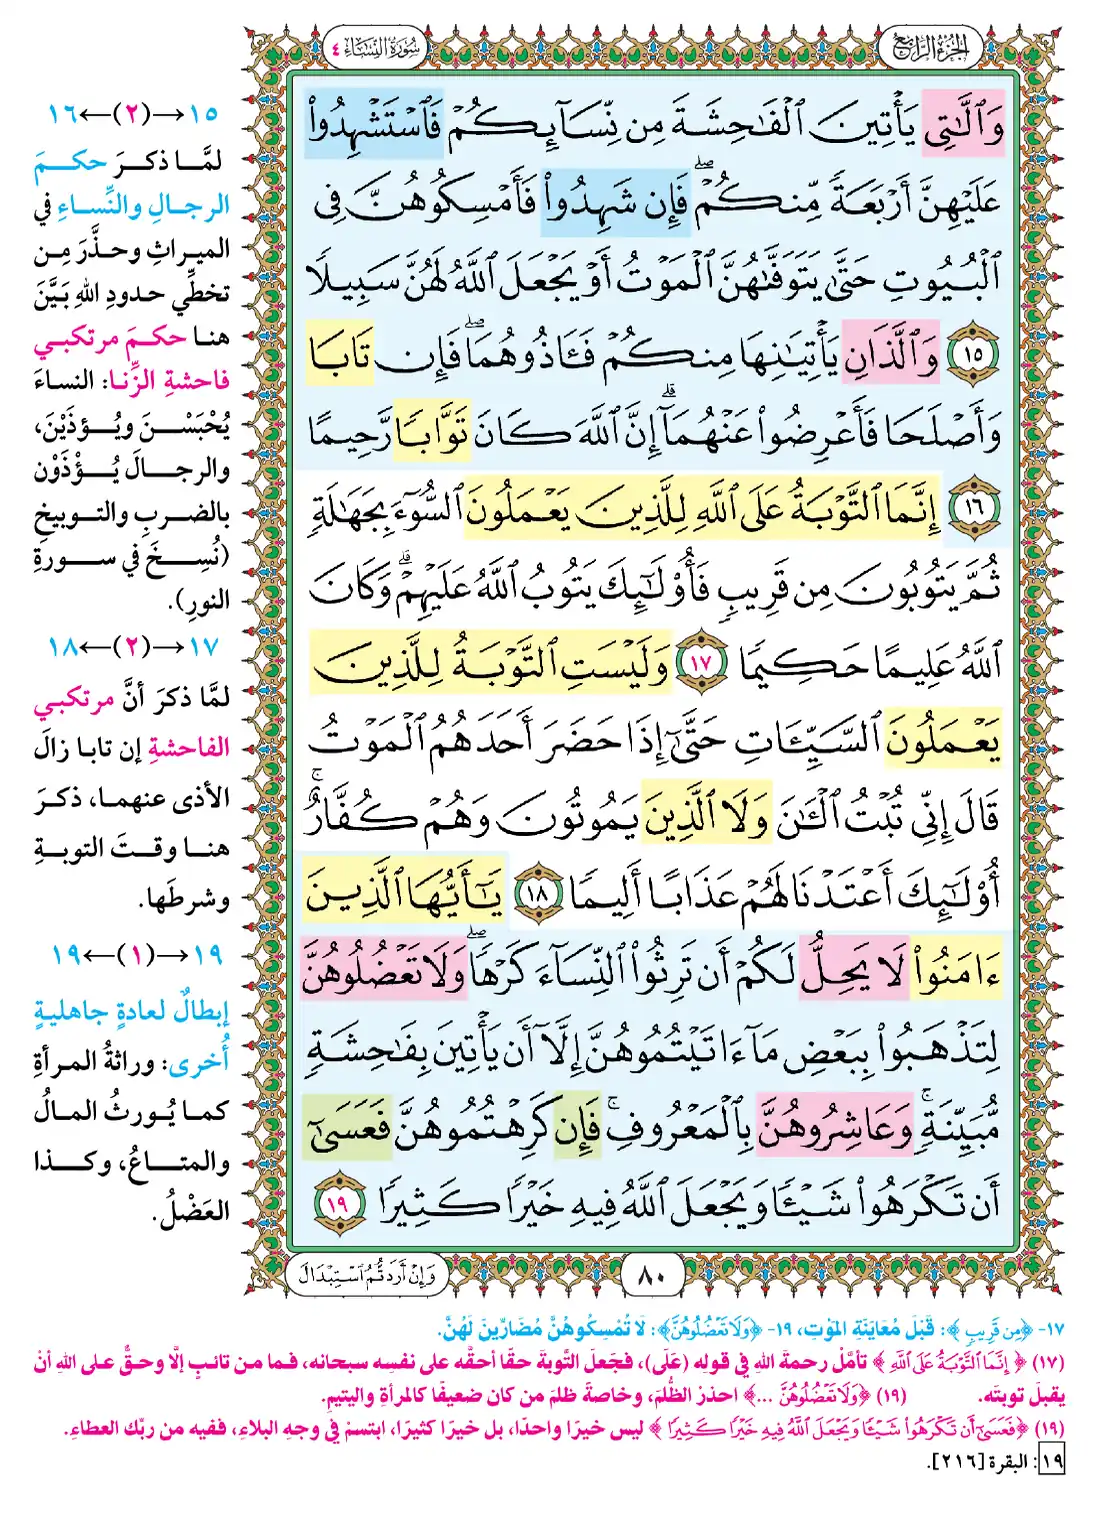 الجزء الرابع
سورة النساء ٤
وَٱلَّٰتِى يَأۡتِينَ ٱلۡفَٰحِشَةَ مِن نِّسَآئِكُمۡ فَٱسۡتَشۡهِدُواْ
عَلَيۡهِنَّ أَرۡبَعَةٗ مِّنكُمۡۖ فَإِن شَهِدُواْ فَأَمۡسِكُوهُنَّ فِى
ٱلۡبُيُوتِ حَتَّىٰ يَتَوَفَّىٰهُنَّ ٱلۡمَوۡتُ أَوۡ يَجۡعَلَ ٱللَّهُ لَهُنَّ سَبِيلٗا
١٥ وَٱلَّذَانِ يَأۡتِيَٰنِهَا مِنكُمۡ فَـَٔاذُوهُمَاۖ فَإِن تَابَا
وَأَصۡلَحَا فَأَعۡرِضُواْ عَنۡهُمَآۗ إِنَّ ٱللَّهَ كَانَ تَوَّابٗا رَّحِيمًا
١٦ إِنَّمَا ٱلتَّوۡبَةُ عَلَى ٱللَّهِ لِلَّذِينَ يَعۡمَلُونَ ٱلسُّوٓءَ بِجَهَٰلَةٖ
ثُمَّ يَتُوبُونَ مِن قَرِيبٖ فَأُوْلَٰٓئِكَ يَتُوبُ ٱللَّهُ عَلَيۡهِمۡۗ وَكَانَ
ٱللَّهُ عَلِيمًا حَكِيمٗا ١٧ وَلَيۡسَتِ ٱلتَّوۡبَةُ لِلَّذِينَ
يَعۡمَلُونَ ٱلسَّيِّـَٔاتِ حَتَّىٰٓ إِذَا حَضَرَ أَحَدَهُمُ ٱلۡمَوۡتُ
قَالَ إِنِّى تُبۡتُ ٱلۡـَٰٔنَ وَلَا ٱلَّذِينَ يَمُوتُونَ وَهُمۡ كُفَّارٌۚ
أُوْلَٰٓئِكَ أَعۡتَدۡنَا لَهُمۡ عَذَابًا أَلِيمٗا ١٨ يَٰٓأَيُّهَا ٱلَّذِينَ
ءَامَنُواْ لَا يَحِلُّ لَكُمۡ أَن تَرِثُواْ ٱلنِّسَآءَ كَرۡهٗاۖ وَلَا تَعۡضُلُوهُنَّ
لِتَذۡهَبُواْ بِبَعۡضِ مَآ ءَاتَيۡتُمُوهُنَّ إِلَّآ أَن يَأۡتِينَ بِفَٰحِشَةٖ
مُّبَيِّنَةٖۚ وَعَاشِرُوهُنَّ بِٱلۡمَعۡرُوفِۚ فَإِن كَرِهۡتُمُوهُنَّ فَعَسَىٰٓ
أَن تَكۡرَهُواْ شَيۡـٔٗا وَيَجۡعَلَ ٱللَّهُ فِيهِ خَيۡرٗا كَثِيرٗا ١٩
٨٠
وَإِنۡ أَرَدتُّمُ ٱسۡتِبۡدَالَ
١٥→(٢)←١٦
لمَّا ذكرَ حكمَ
الرجالِ والنِّساءِ في
الميراثِ وحذَّرَ مِن
تخطِّي حدودِ اللهِ بَيَّنَ
هنا حكمَ مرتكبي
فاحشةِ الزِّنا: النساءَ
يُحْبَسْنَ ويُؤذَيْنَ،
والرجالَ يُؤْذَوْن
بالضربِ والتوبيخِ
(نُسِخَ في سورةِ
النورِ).
١٧→(٢)←١٨
لمَّا ذكرَ أنَّ مرتكبي
الفاحشةِ إن تابا زالَ
الأذى عنهما، ذكرَ
هنا وقتَ التوبةِ
وشرطَها.
١٩→(١)←١٩
إبطالٌ لعادةٍ جاهليةٍ
أُخرى: وراثةُ المرأةِ
كما يُورثُ المالُ
والمتاعُ، وكذا
العَضْلُ.
١٧- ﴿مِن قَرِيبٖ﴾: قَبْلَ مُعَايَنَةِ المَوْتِ، ١٩- ﴿وَلَا تَعۡضُلُوهُنَّ﴾: لَا تُمْسِكُوهُنَّ مُضَارِّينَ لَهُنَّ.
(١٧) ﴿إِنَّمَا ٱلتَّوۡبَةُ عَلَى ٱللَّهِ﴾ تأمَّلْ رحمةَ اللهِ في قولِه (عَلَى)، فجَعلَ التَّوبةَ حقًا أحقَّه على نفسِه سبحانه، فما من تائبٍ إلَّا وحقٌّ على اللهِ أنْ
يقبلَ توبتَه. (١٩) ﴿وَلَا تَعۡضُلُوهُنَّ ...﴾ احذرْ الظُّلمَ، وخاصةً ظلمَ من كان ضعيفًا كالمرأةِ واليتيمِ.
(١٩) ﴿فَعَسَىٰٓ أَن تَكۡرَهُواْ شَيۡـٔٗا وَيَجۡعَلَ ٱللَّهُ فِيهِ خَيۡرٗا كَثِيرٗا﴾ ليس خيرًا واحدًا، بل خيرًا كثيرًا، ابتسمْ في وجهِ البلاءِ، ففيه من ربِّك العطاءِ.
١٩: البقرة [٢١٦].